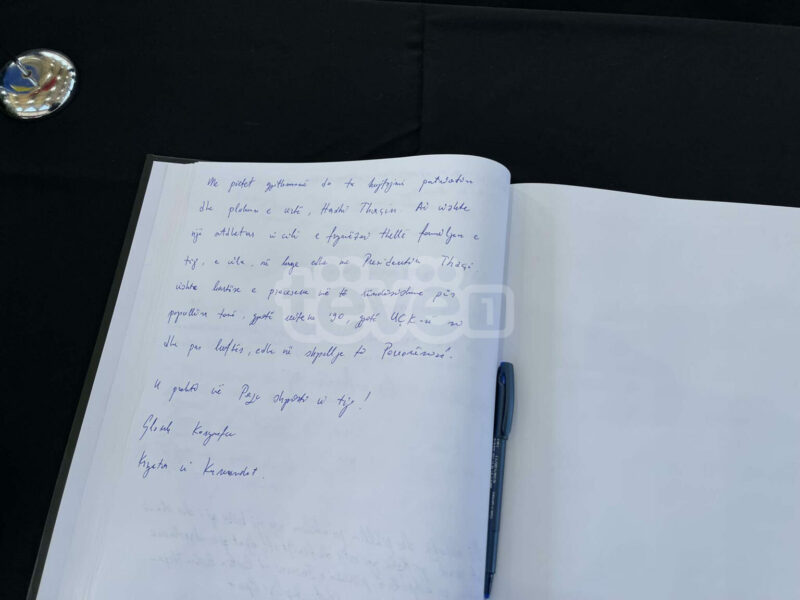 Me pietet gjithmonë do ta kujtojmë patriotin
dhe plakun e urtë, Haxhi Thaçin. Ai ishte
një atdhetar i cili e frymëzoi thellë familjen e
tij, e cila, në krye edhe me Presidentin Thaçi,
ishte bartëse e proceseve më të rëndësishme për
popullin tonë, gjatë viteve '90, gjatë UÇK-së
dhe pas luftës, edhe në shpallje të Pavarësisë.
U prehtë në Paqe shpirti i tij!
Glauk Konjufca
Kryetar i Kuvendit.
tëvë 1